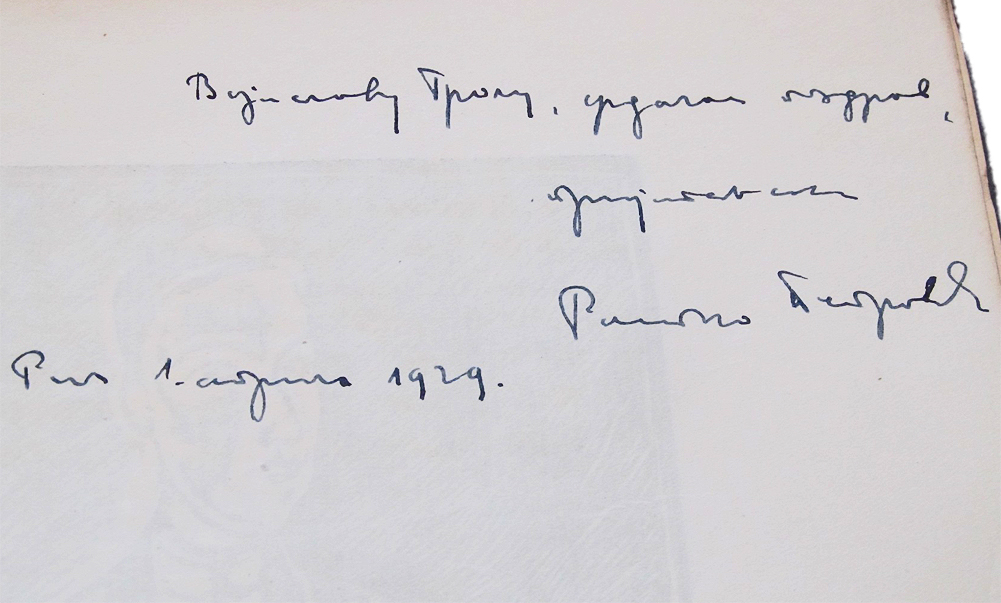 Војиславу Гролу, срдачан поздрав,
пријатељски
Растко Петровић
Рим 1. априла 1929.